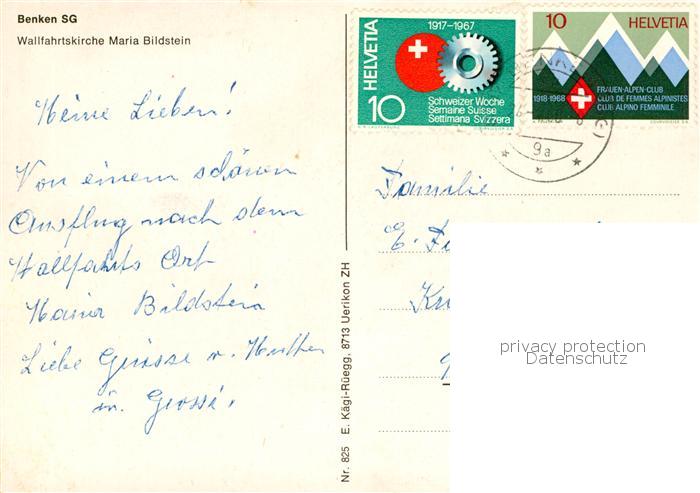 Benken SG
Wallfahrtskirche Maria Bildstein
Meine Lieben!
Von einem schönen
Ausflug nach dem
Wallfahrts Ort
Bildstein
Liebe Grüsse v. Mutter
u.
1917-1967
HELVETIA
10
Schweizer Woche
Semaine Suisse
Settimana Svizzera
10 HELVETIA
FRAUEN-ALPEN-CLUB
1918-1968 CLUB DE FEMMES ALPINISTES
CLUB ALPINO FEMMINILE
9a
Familie
E.
Nr. 825 E. Kägi-Rüegg, 8713 Uerikon ZH
privacy protection
Datenschutz